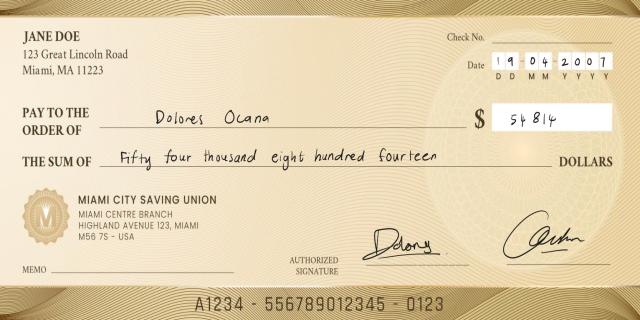 JANE DOE
123 Great Lincoln Road
Miami, MA 11223
Check No.
Date 19-04-2007
D D M M Y Y Y Y
PAY TO THE ORDER OF Dolores Ocana
$ 54814
THE SUM OF Fifty four thousand eight hundred fourteen DOLLARS
M
MIAMI CITY SAVING UNION
MIAMI CENTRE BRANCH
HIGHLAND AVENUE 123, MIAMI
M56 7S - USA
MEMO
AUTHORIZED SIGNATURE
A1234 - 556789012345 - 0123